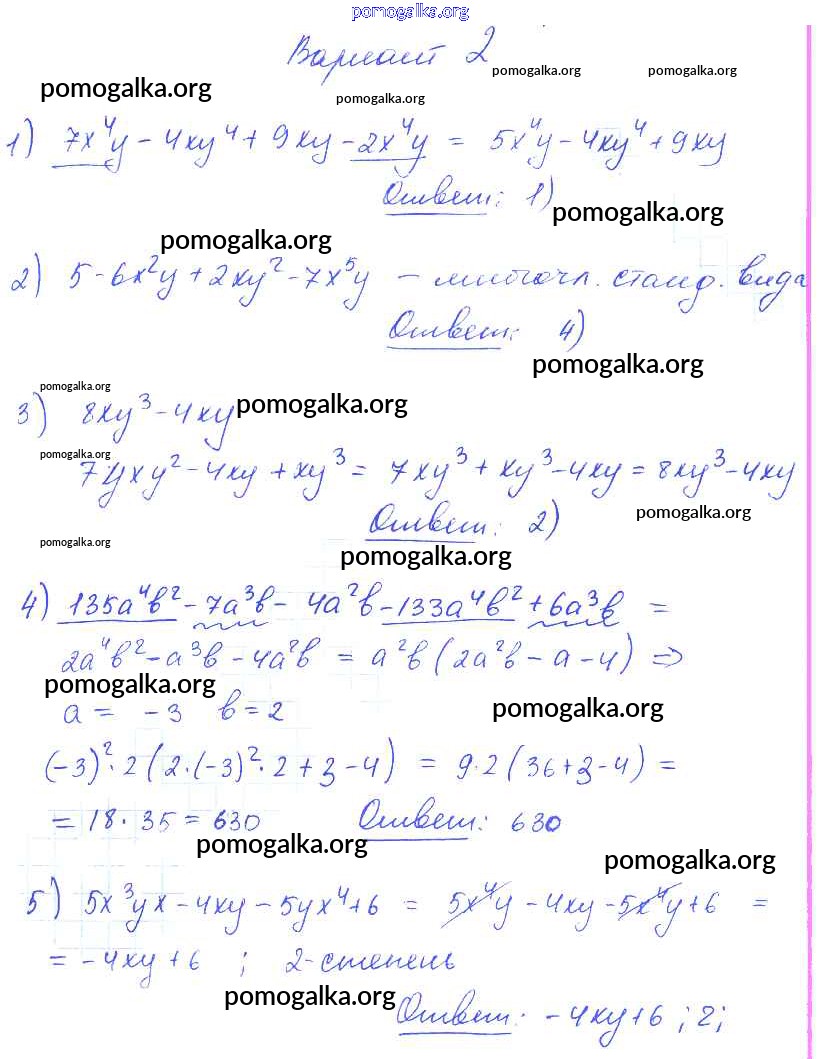 pomogalka.org
Вариант 2
pomogalka.org pomogalka.org
pomogalka.org
pomogalka.org
1) 7x⁴y - 4xy⁴ + 9xy - 2x⁴y = 5x⁴y - 4xy⁴ + 9xy
Ответ: 1)
pomogalka.org
pomogalka.org
2) 5 - 6x²y + 2xy² - 7x⁵y - многочл. станд. вида
Ответ: 4)
pomogalka.org
pomogalka.org
3) 8xy³ - 4xy pomogalka.org
pomogalka.org
7yxy² - 4xy + xy³ = 7xy³ + xy³ - 4xy = 8xy³ - 4xy
Ответ: 2) pomogalka.org
pomogalka.org
pomogalka.org
4) 135a⁴b² - 7a³b - 4a²b - 133a⁴b² + 6a³b =
2a⁴b² - a³b - 4a²b = a²b(2a²b - a - 4) ⇒
pomogalka.org
a = -3 b = 2 pomogalka.org
(-3)²·2(2·(-3)²·2 + 3 - 4) = 9·2(36 + 3 - 4) =
= 18·35 = 630 Ответ: 630
pomogalka.org
pomogalka.org
5) 5x³yx - 4xy - 5yx⁴ + 6 = 5x⁴y - 4xy - 5x⁴y + 6 =
= -4xy + 6 ; 2-степень
pomogalka.org
Ответ: -4xy + 6 ; 2;